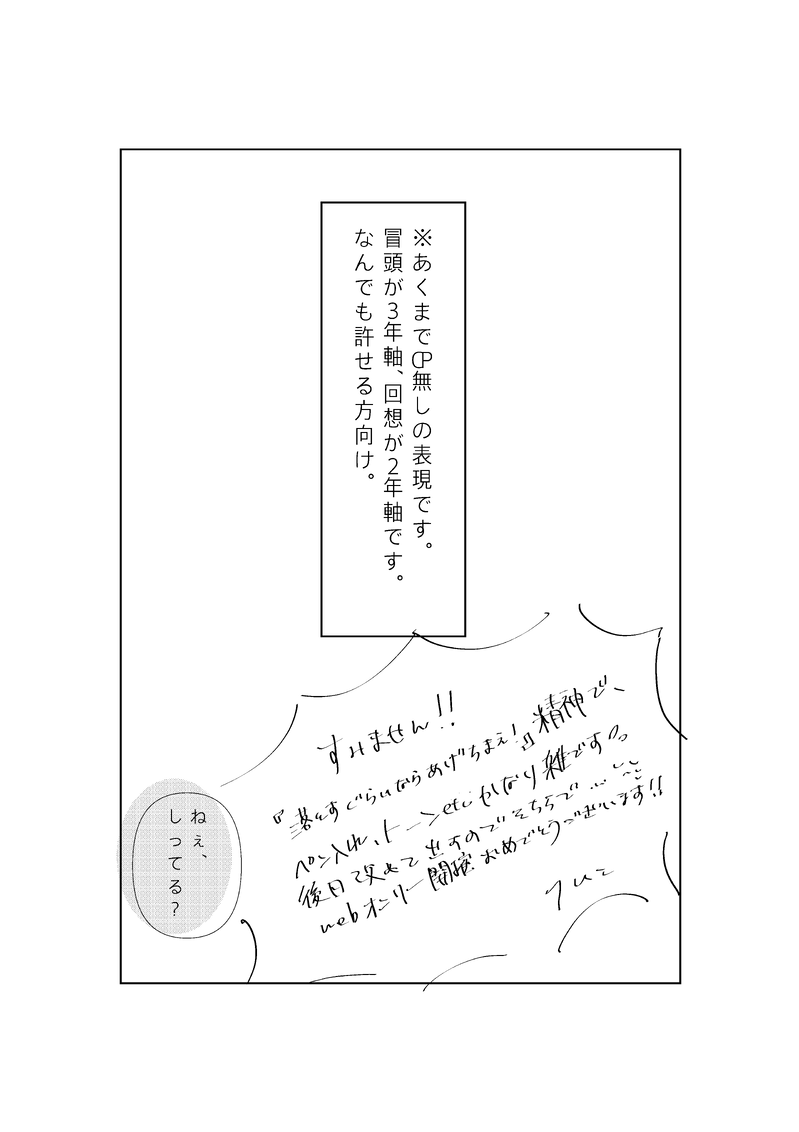 ※あくまでCP無しの表現です。
冒頭が3年軸、回想が2年軸です。
なんでも許せる方向け。
すみません!!
『落とすぐらいならあげちまえ!』精神で、
ペン入れ、トーンetcかなり雑です
後日改めて出すのでそちらで…
webオンリー開催おめでとうございます!!
ねぇ、
しってる?